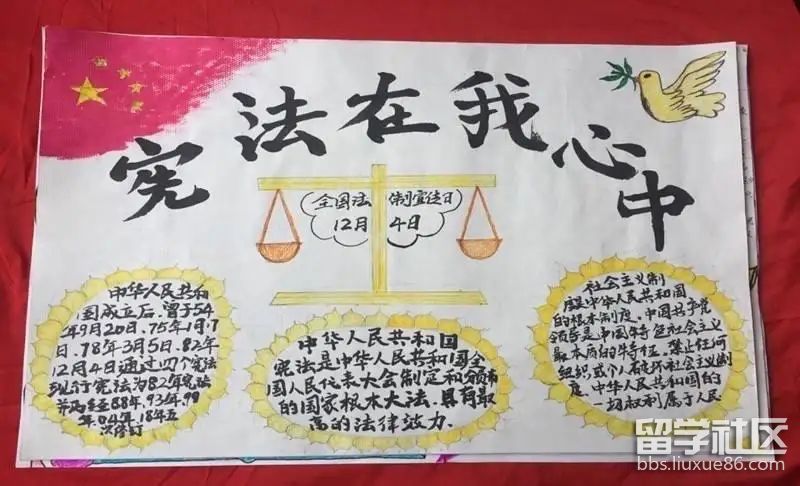 宪法在我心中
全国法制宣传日
12月4日
中华人民共和
国成立后,曾于54
年9月20日、75年1月17
日、78年3月5日、82年
12月4日通过四个宪法
现行宪法为82年宪法
并历经88年、93年、99
年、04年、18年五
次修订
中华人民共和国
宪法是中华人民共和国全
国人民代表大会制定和颁布
的国家根本大法.具有最
高的法律效力.
社会主义制
度是中华人民共和国
的根本制度。中国共产党
领导是中国特色社会主义
最本质的特征。禁止任何
组织或个人破坏社会主义制
度.中华人民共和国的一
切权利属于人民
留学社区
bbs.liuxue86.com